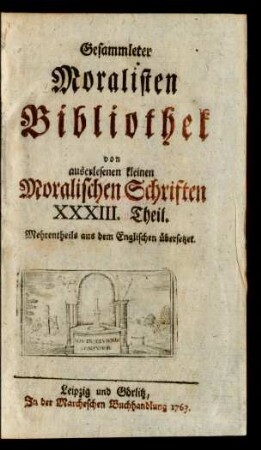 Gesammleter
Moralisten
Bibliothek
von
auserlesenen kleinen
Moralischen Schriften
XXXIII. Theil.
Mehrentheils aus dem Englischen übersetzet.
Leipzig und Görlitz,
In der Marcheschen Buchhandlung 1763.